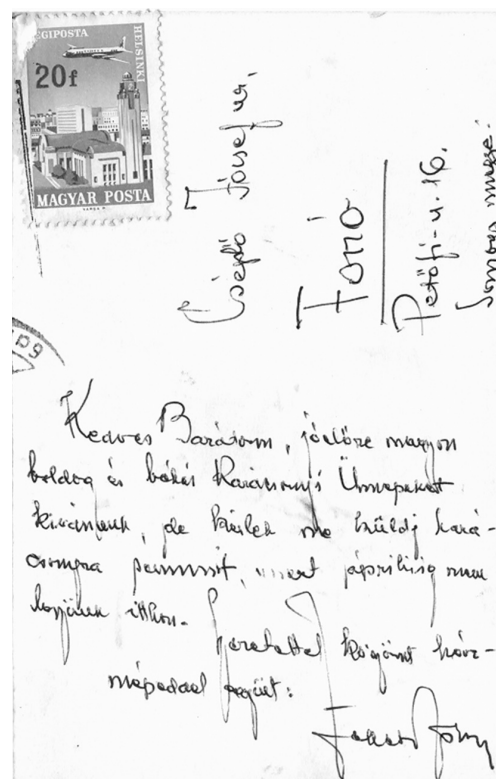 LÉGIPOSTA
HELSINKI
20f
MAGYAR POSTA
Cseplő József úr,
Fonó
Petőfi-u. 16.
Somogy megye.
Kedves Barátom, jóelőre nagyon
boldog és békés Karácsonyi Ünnepeket
kívánunk, de kérlek ne küldj kará-
csonyra semmit, mert áprilisig nem
leszünk itthon.
Szeretettel köszönt ház-
népeddel együtt: